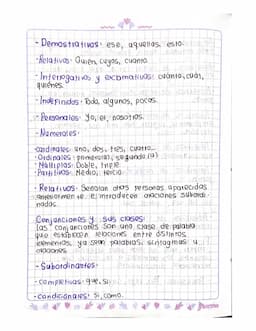 - Demostrativos: ese, aquellas, esto.
- Relativos: Quién, cuyos, cuanto
- Interrogativos y exclamativos: cuánto, cuál,
quiénes.
- Indefinidos: Todo, algunos, pocos.
- Personales: Yo, el, nosotros.
- Numerales:
-cardinales: uno, dos, tres, cuatro...
-Ordinales: primero(a), segundo(a)
-Múltiplos: Doble, triple.
-Partitivos: Medio, tercio.
- Relativos: Señalan otras personas aparecidas
anteriormente e introducen oraciones subordi-
nadas.
Conjunciones y sus clases:
Las conjunciones son una clase de palabra
que establecen relaciones entre distintos
elementos, ya sean palabras, sintagmas u
oraciones.
- Subordinantes:
- completivas: que, si.
- condicionales: si, como.